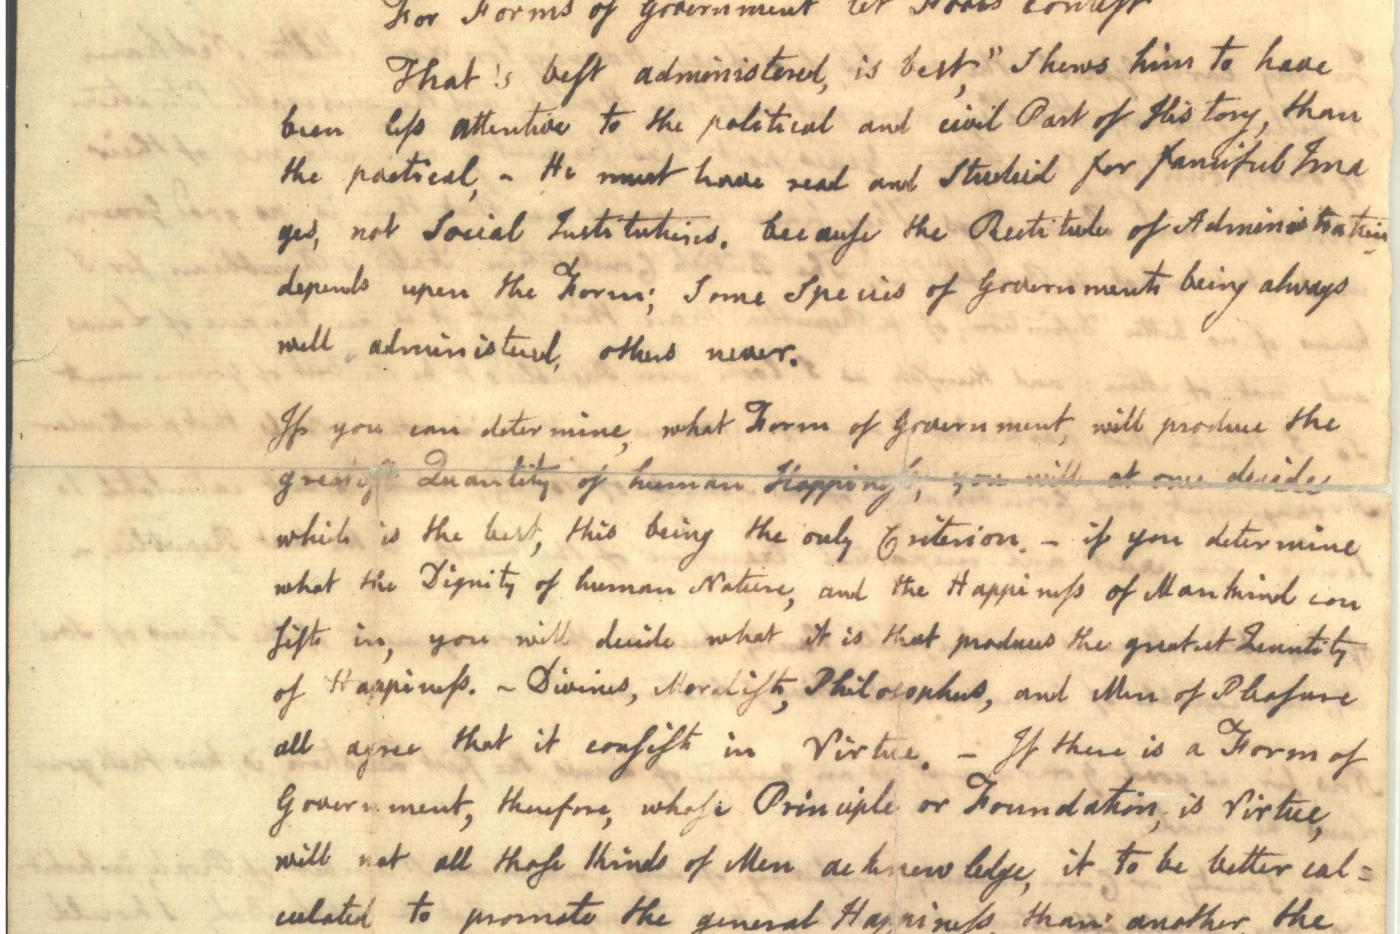 For Forms of Government let Fools contest
That's best administered, is best," Shews him to have
been less attentive to the political and civil Part of History, than
the poetical, - He must have read and Studied for fanciful Ima
ges, not Social Institutions. because the Rectitude of Administration
depends upon the Form; Some Species of Governments being always
well administered, others never.
If you can determine, what Form of Government, will produce the
greatest Quantity of human Happiness, you will at once decide
which is the best, this being the only Criterion. - if you determine
what the Dignity of human Nature, and the Happiness of Mankind con
sists in, you will decide what it is that produces the greatest Quantity
of Happiness. - Divines, Moralists, Philosophers, and Men of Pleasure
all agree that it consists in Virtue. - If there is a Form of
Government, therefore, whose Principle or Foundation, is Virtue,
will not all those Kinds of Men acknowledge, it to be better cal=
culated to promote the general Happiness, than another, the